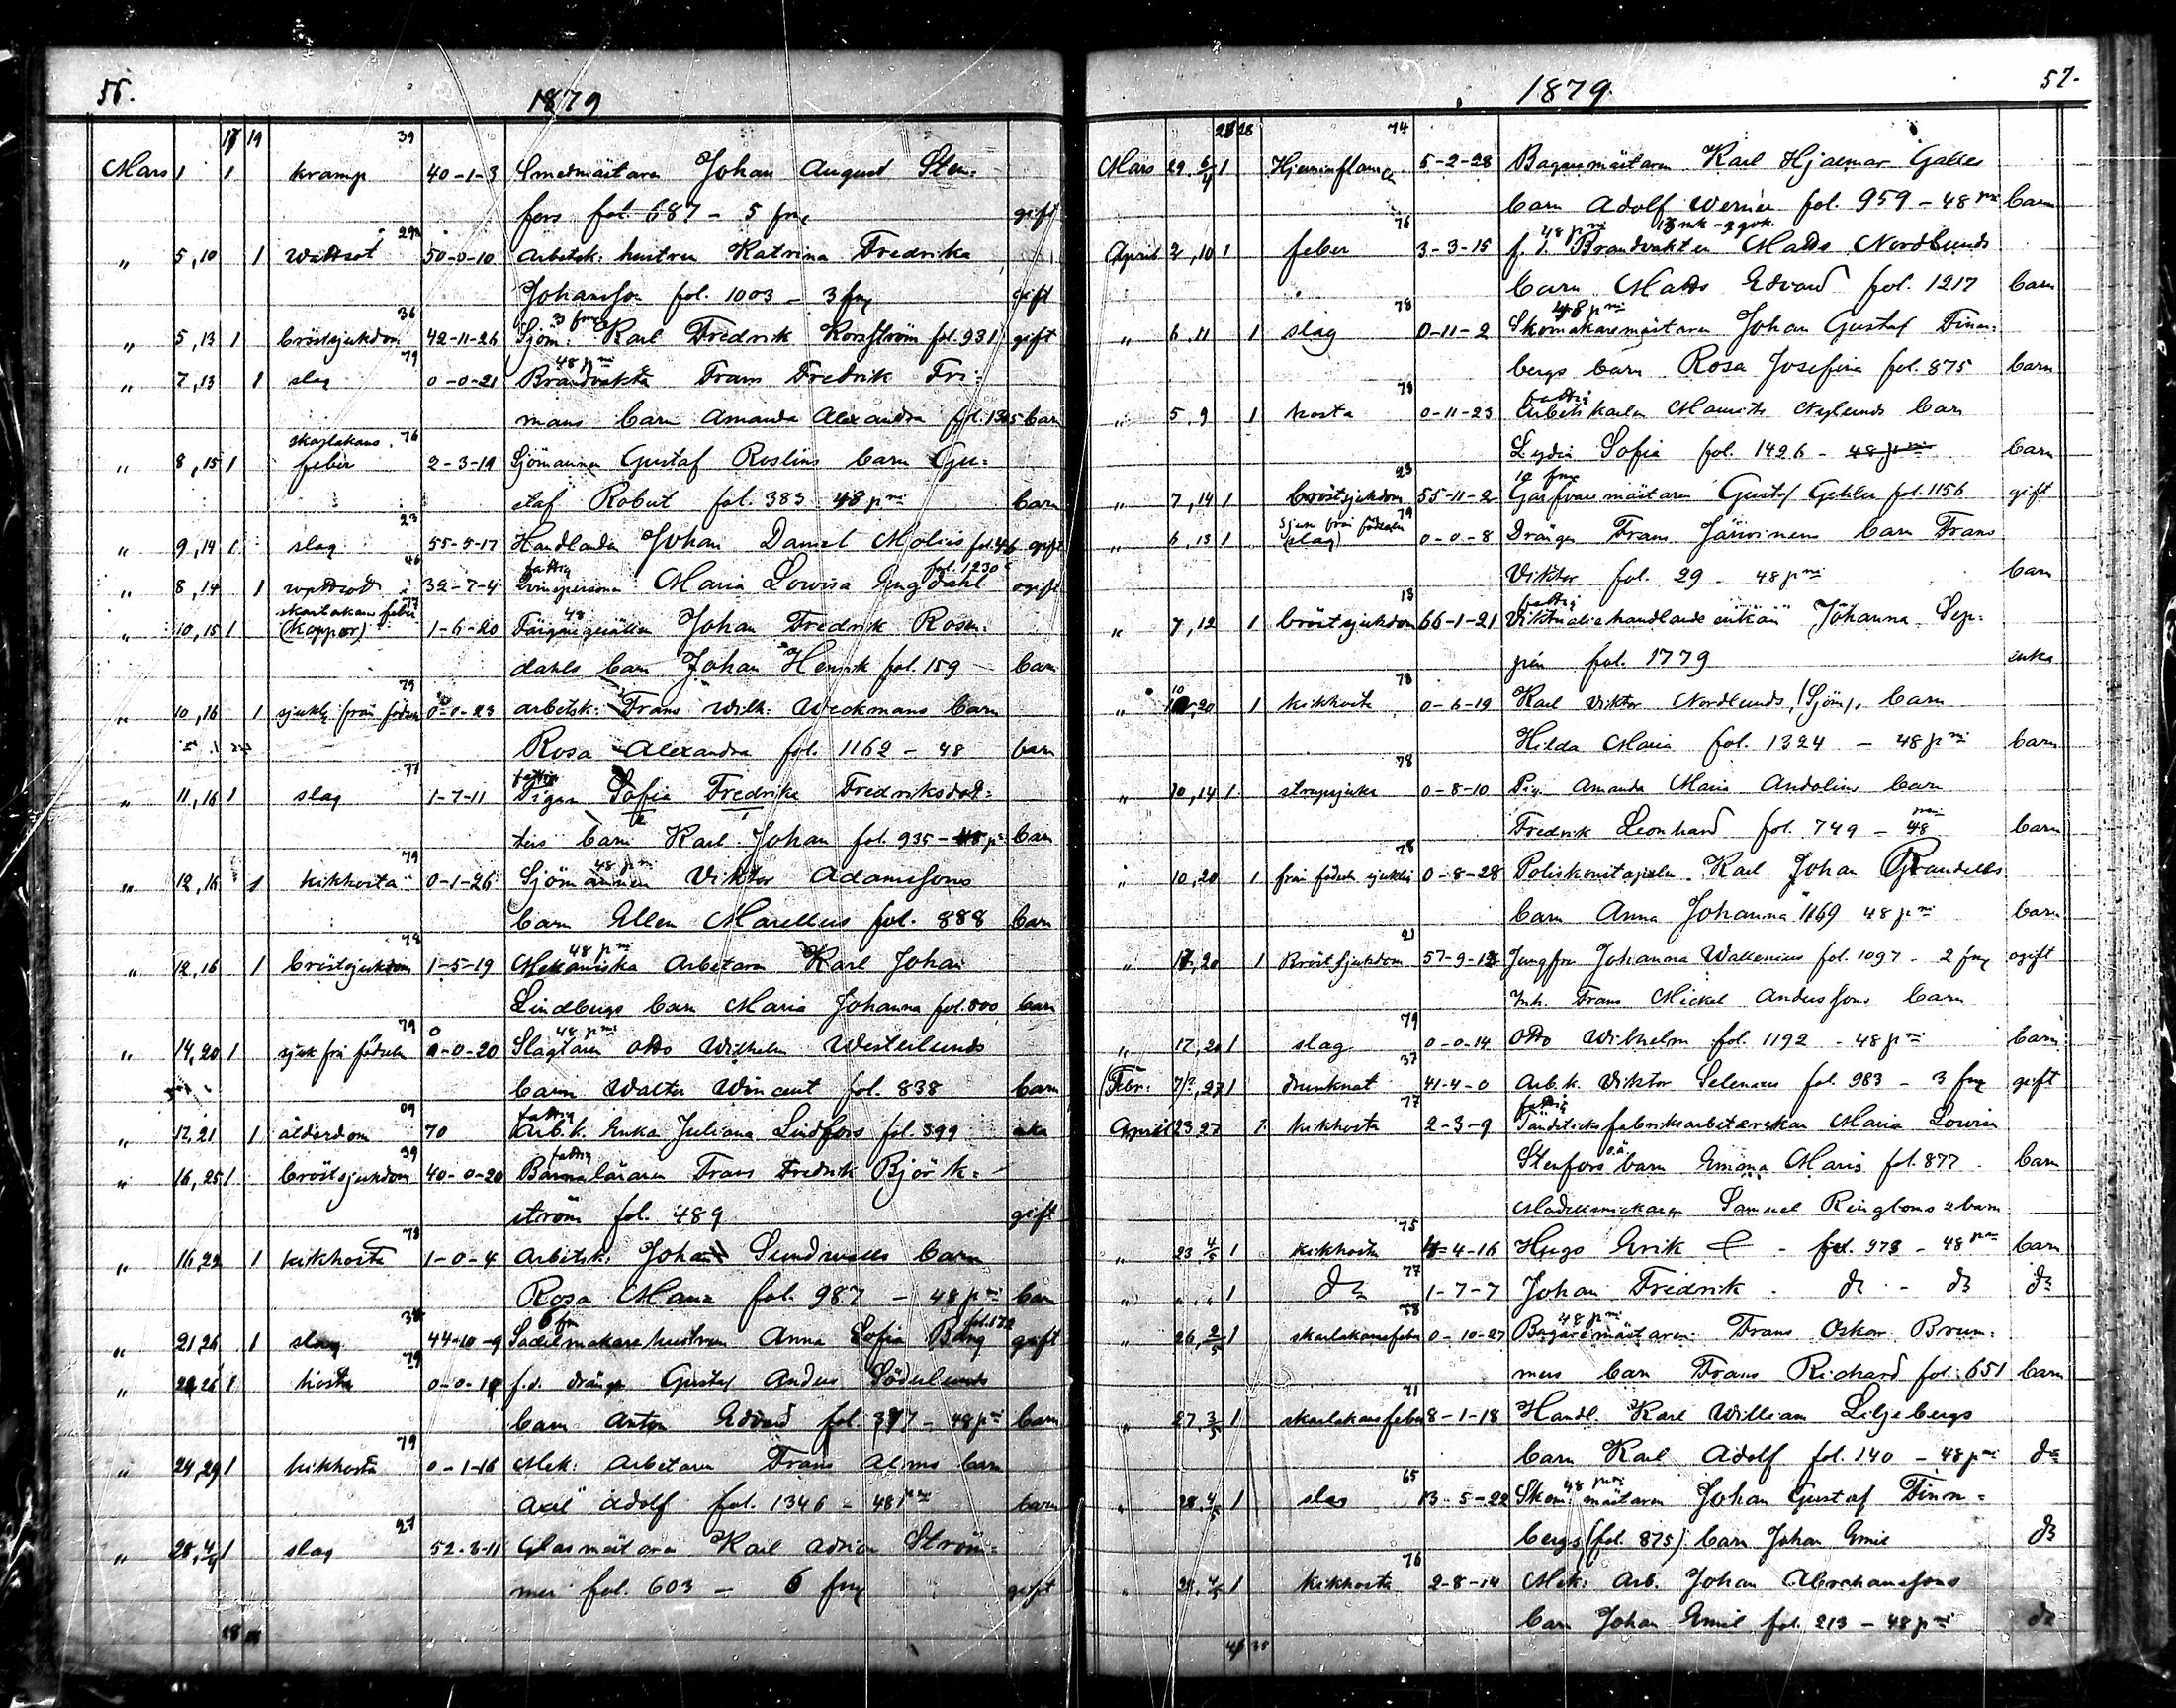 56.
1879
17 19
39
Mars 1 1 kramp 40-1-3 Smedmästaren Johan August Sten-
fors fol. 687 - 5 fmk gift
29
" 5,10 1 wattsot 50-0-10 Arbetsk: hustrun Katrina Fredrika
Johansson fol. 1003 - 3 fmk gift
36 3 fmk
" 5,13 1 bröstsjukdom 42-11-26 Sjöm: Karl Fredrik Korsström fol. 931 gift
79 48 pni
" 7,13 1 slag 0-0-21 Brandvakts Frans Fredrik Fri-
mans barn Amanda Alexandra fol. 1305 barn
skarlakans 76
" 8,15 1 feber 2-3-19 Sjömannen Gustaf Roslins barn Gu-
staf Robert fol. 383 48 pni barn
23
" 9,14 1 slag 55-5-17 Handlanden Johan Daniel Moliis fol. 46 gift
46 fattig fol. 1230
" 8,14 1 wattsot 32-7-4 Qvinspersonen Maria Lovisa Engdahl ogift
skarlakans feber 77 48
" 10,15 1 (koppor) 1-6-20 Färgaregesällen Johan Fredrik Rosen-
dahls barn Johan Henrik fol. 159 barn
79
" 10,16 1 sjuklig från födseln 0-0-23 arbetsk: Frans Wilh. Weckmans barn
Rosa Alexandra fol. 1162 - 48 barn
77 fattig
" 11,16 1 slag 1-7-11 Pigan Sofia Fredrika Fredriksdot-
ters barn Karl Johan fol. 935 - 48 p barn
79 48 pni
" 12,16 1 kikhosta 0-1-26 Sjömannen Viktor Adamssons
barn Ellen Marellus fol. 888 barn
78 48 pni
" 12,16 1 bröstsjukdom 1-5-19 Mekaniska Arbetaren Karl Johan
Lindbergs barn Maria Johanna fol. 800 barn
79 48 pni
" 14,20 1 sjuk frå födseln 0-0-20 Slagtaren Otto Wilhelm Westerlunds
barn Walter Wincent fol. 838 barn
09 fattig
" 17,21 1 ålderdom 70 Arb.k. Enka Juliana Lindfors fol. 899 enka
39 fattig
" 16,25 1 bröstsjukdom 40-0-20 Barnaläraren Frans Fredrik Björk-
ström fol. 489 gift
78
" 16,22 1 kikhosta 1-0-4 Arbetsk: Johan Sundwalls barn
Rosa Maria fol. 987 - 48 pni barn
34 6 fm fol. 172
" 21,26 1 slag 44-10-9 Sadelmakare hustrun Anna Sofia Bång gift
79
" 24,26 1 hosta 0-0-18 f.d. dräng Gustaf Anders Söderlunds
barn Anton Edvard fol. 317 - 48 pni barn
79
" 24,29 1 kikhosta 0-1-16 Mek: Arbetaren Frans Alms barn
Axel Adolf fol. 1346 - 48 pni barn
27
" 28,4/4 1 slag 52-3-11 Glasmästaren Karl Adrian Ström-
mer fol. 603 - 6 fmk gift
57.
1879.
28
74
Mars 29,6/4 1 Hjerninflamation 5-2-28 Bagaremästaren Karl Hjalmar Galles
barn Adolf Werner fol. 959 - 48 pni barn
76 48 pni
April 2,10 1 feber 3-3-15 f.d. Brandvakten Matts Nordlunds
barn Matts Edvard fol. 1217 barn
78 48 pni
" 6,11 1 slag 0-11-2 Skomakaremästaren Johan Gustaf Finn-
bergs barn Rosa Josefina fol. 875 barn
78 fattig
" 5,9 1 hosta 0-11-23 Arbetskarlen Maurits Nylunds barn
Lydia Sofia fol. 1426 - 48 pni barn
23 10 fmk
" 7,14 1 bröstsjukdom 55-11-2 Garfvaremästaren Gustaf Gehler fol. 1156 gift
sjuk från födseln 79
" 6,13 1 (slag) 0-0-8 Drängen Frans Järvinens barn Frans
Viktor fol. 29 - 48 pni barn
13 fattig
" 7,12 1 bröstsjukdom 66-1-21 Viktualiehandlande enkan Johanna Sep-
pén fol. 1779 enka
78
" 10,20 1 kikhosta 0-6-19 Karl Viktor Nordlunds, (Sjöm), barn
Hilda Maria fol. 1324 - 48 pni barn
78
" 10,14 1 strupsjuka 0-8-10 Pig. Amanda Maria Andolins barn
Fredrik Leonhard fol. 749 - 48 pni barn
78
" 10,20 1 från födseln sjuklig 0-8-28 Poliskonstapeln Karl Johan Grandells
barn Anna Johanna 1169 48 pni barn
21
" 17,20 1 Bröstsjukdom 57-9-13 Jungfru Johanna Wallenius fol. 1097 - 2 fmk ogift
Inh. Frans Mickel Anderssons barn
79
" 17,20 1 slag 0-0-14 Otto Wilhelm fol. 1192 - 48 pni barn
37
(Febr: 7/2,27 1 drunknat 41-4-0 Arb.k. Viktor Selenius fol. 983 - 3 fmk gift
77 fattig
April 23,27 1 kikhosta 2-3-9 Tändsticksfabriksarbeterskan Maria Lovisa
Stenfors o.ä. barn Emma Maria fol. 877 barn
Modellsnickaren Samuel Ringboms 2 barn
75
" 23,4/5 1 kikhosta 4-4-16 Hugo Erik & - fol. 978 - 48 pni barn
77
" " " 1 do 1-7-7 Johan Fredrik - do - do do
78 48 pni
" 26,2/5 1 skarlakansfeber 0-10-27 Bagaremästaren Frans Oskar Brum-
mers barn Frans Richard fol. 651 barn
71
" 27,3/5 1 skarlakansfeber 8-1-18 Handl. Karl William Liljebergs
barn Karl Adolf fol. 140 - 48 pni do
65 48 pni
" 28,4/5 1 slag 13-5-22 Skom: mästaren Johan Gustaf Finn-
bergs (fol. 875) barn Johan Emil do
76
" 28,4/5 1 kikhosta 2-8-14 Mek: Arb. Johan Abrahamssons
barn Johan Emil fol. 213 - 48 pni do